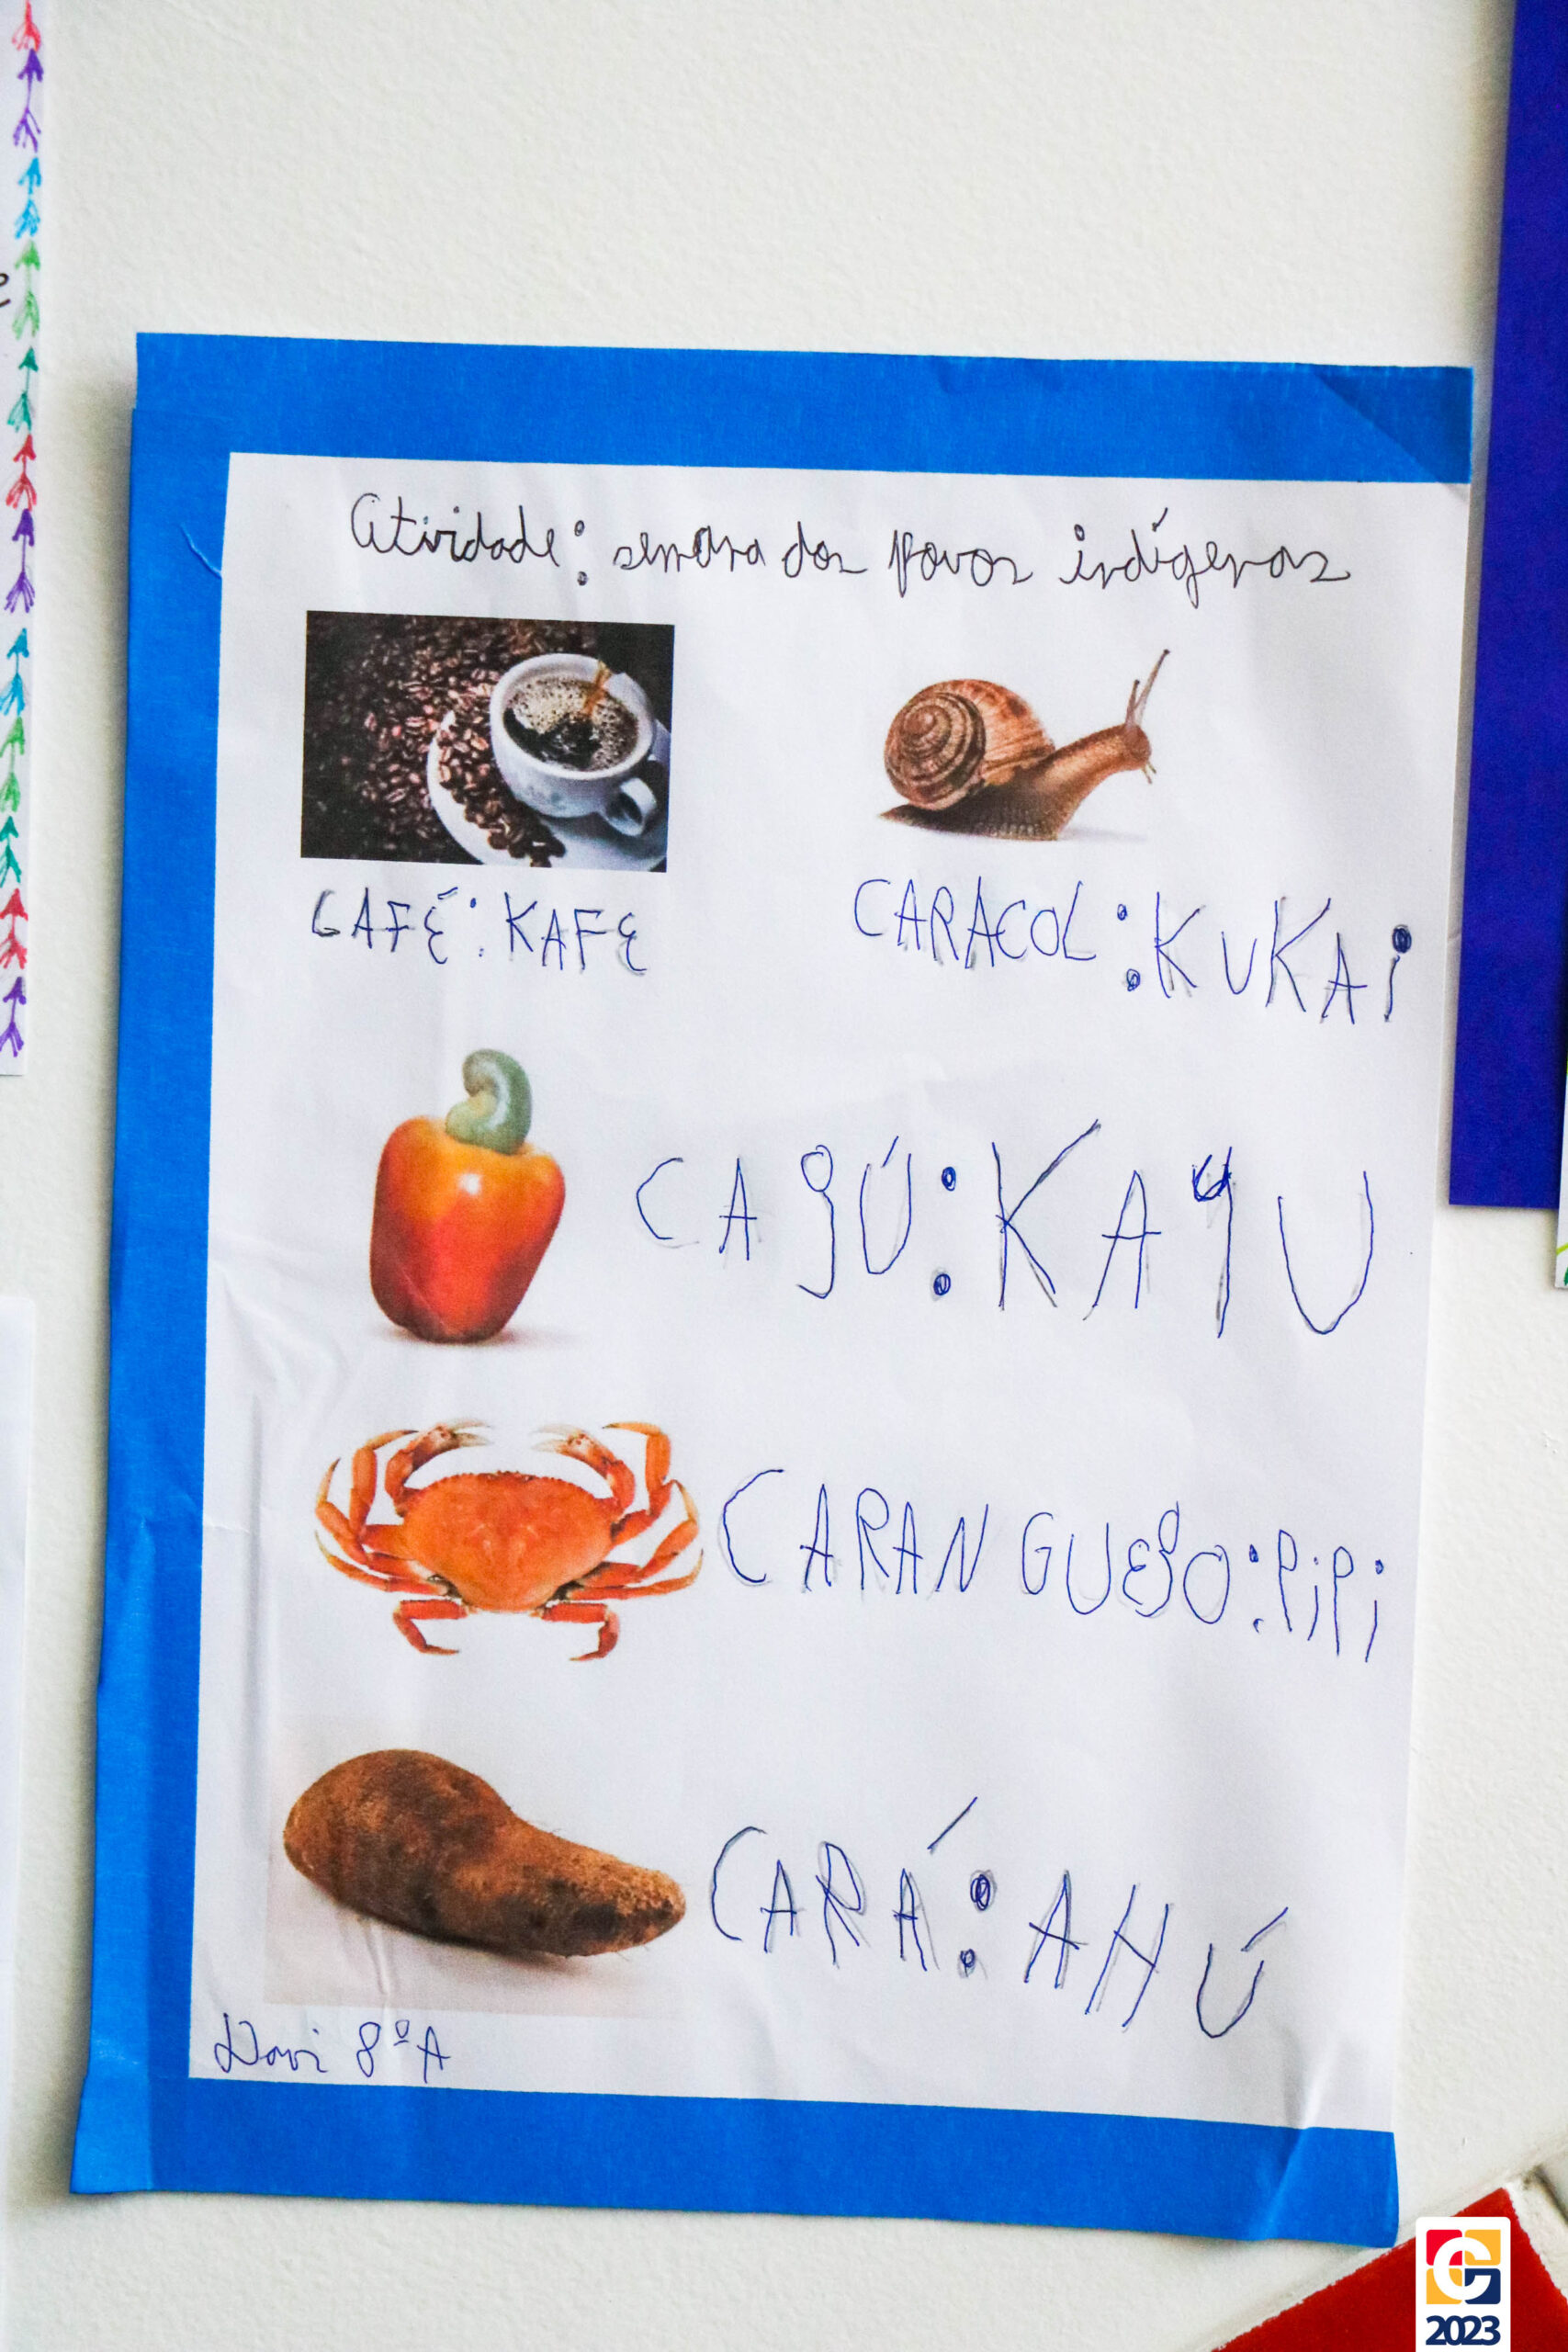 Atividade: semana dos povos indígenas
CAFÉ: KAFE
CARACOL: KUKAi
CAJÚ: KAYU
CARANGUEJO: PiPi
CARÁ: AHÚ
Davi 8º A
2023